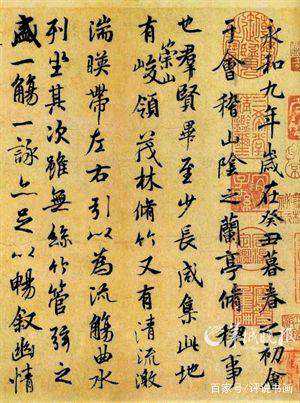 永和九年歲在癸丑暮春之初會
于會稽山陰之蘭亭脩禊事
也羣賢畢至少長咸集此地
有崇山峻領茂林脩竹又有清流激
湍暎帶左右引以為流觴曲水
列坐其次雖無絲竹管弦之
盛一觴一詠亦足以暢敘幽情
百家号/评说书画